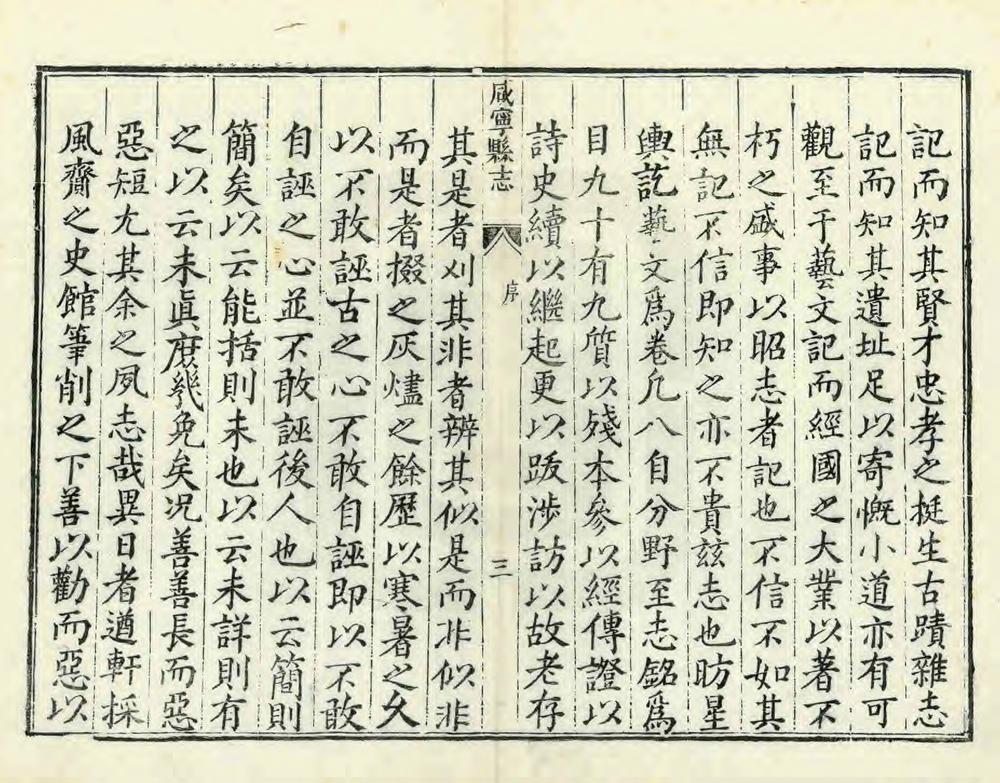 記而知其賢才忠孝之挺生古蹟雜志
記而知其遺址足以寄慨小道亦有可
觀至于藝文記而經國之大業以著不
朽之盛事以昭志者記也不信不如其
無記不信即知之亦不貴茲志也昉星
輿訖藝文爲卷凢八自分野至志銘爲
目九十有九質以殘本參以經傳證以
詩史續以繼起更以跋涉訪以故老存
咸寧縣志
序
三
其是者刈其非者辨其似是而非似非
而是者掇之灰燼之餘歷以寒暑之久
以不敢誣古之心不敢自誣即以不敢
自誣之心並不敢誣後人也以云簡則
簡矣以云能括則未也以云未詳則有
之以云未眞庶幾免矣况善善長而惡
惡短尤其余之夙志哉異日者遒軒採
風齎之史館筆削之下善以勸而惡以